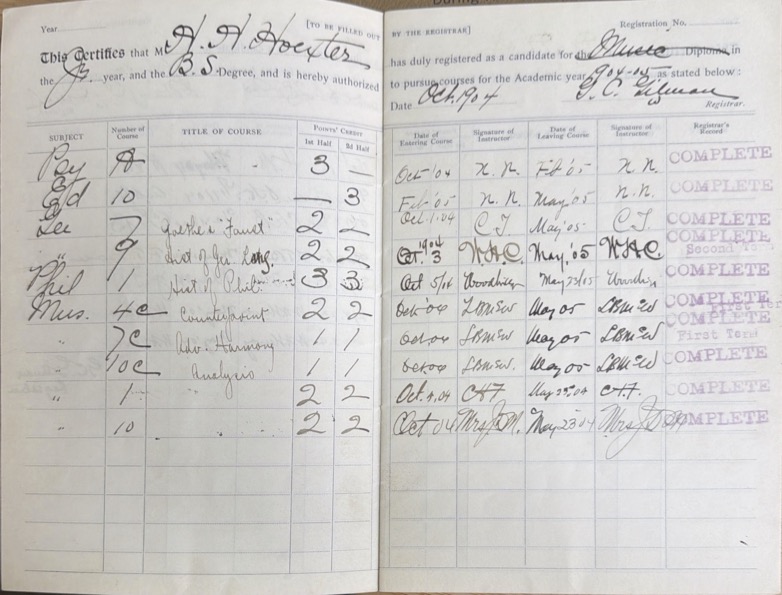 Year
[TO BE FILLED OUT
This Certifies that M H. H. Hoexter
the Jr. year, and the B. S. Degree, and is hereby authorized
SUBJECT Number of Course TITLE OF COURSE POINTS' CREDIT 1st Half 2d Half
8 3 —
10 — 3
7 Goethe's "Faust" 2 2
" 9 Hist of Ger Lang. 2 2
Phil 1 Hist of Phil. 3 3
Mus. 4c Counterpoint 2 2
" 7c Adv. Harmony 1 1
" 10c Analysis 1 1
" 1 " 2 2
" 10 " 2 2
BY THE REGISTRAR]
Registration No.
has duly registered as a candidate for the Music Diploma in
to pursue courses for the Academic year 1904-05 as stated below:
Date Oct. 1904
Registrar.
Date of Entering Course Signature of Instructor Date of Leaving Course Signature of Instructor Registrar's Record
Oct '04 N. N. Feb '05 N. N. COMPLETE
Feb '05 N. N. May '05 N. N. COMPLETE
Oct. 1. 04 C T. May '05 C T. COMPLETE
Oct. 3 1904 W.H.C. May, '05 W.H.C. COMPLETE Second
Oct 5/04 May 05 COMPLETE
Oct '04 LBMcW May 05 LBMcW COMPLETE First
Oct 04 LBMcW. May 05 LBMcW COMPLETE First Term
Oct 04 LBMcW. May 05 LBMcW COMPLETE
Oct. 4. 04 May 04 COMPLETE
Oct 04 May 23 04 COMPLETE